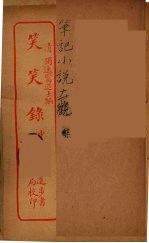 筆記小說大觀
清獨逸窩退士編
笑笑錄
一
進步書局校印